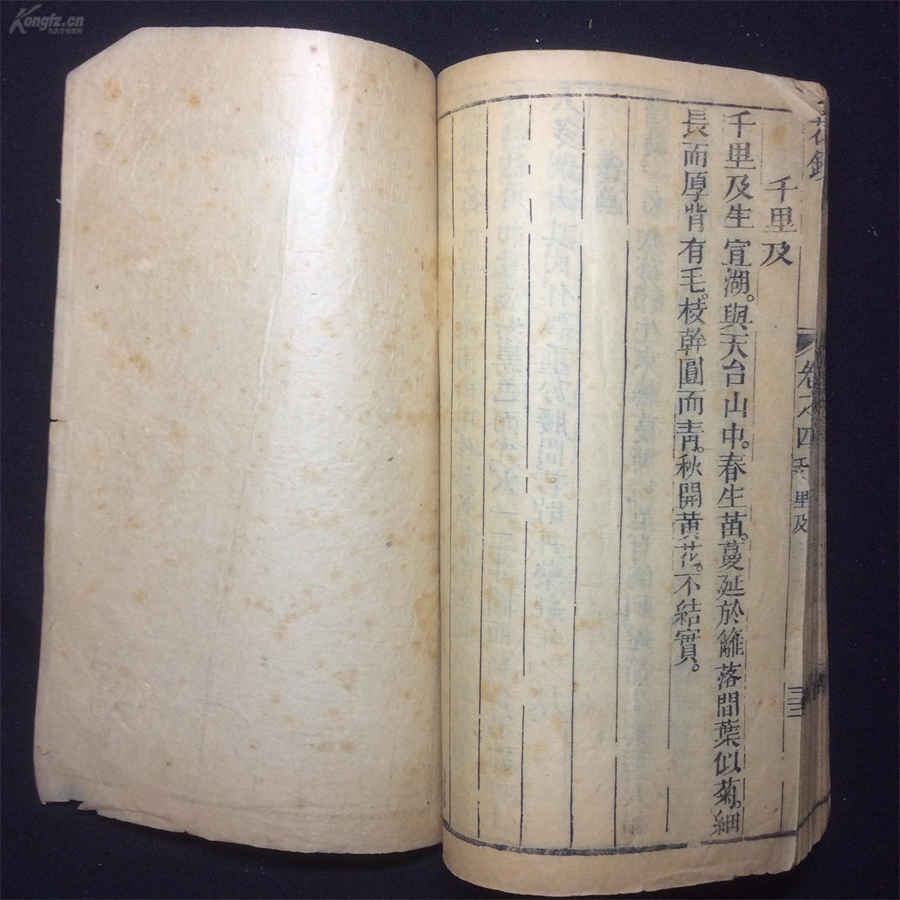 Kongfz.cn
花鏡
卷之四 千里及
三三
千里及
千里及生宜湖。與天台山中。春生苗。蔓延於籬落間葉似菊。細
長而厚背有毛。枝幹圓而青。秋開黄花。不結實。